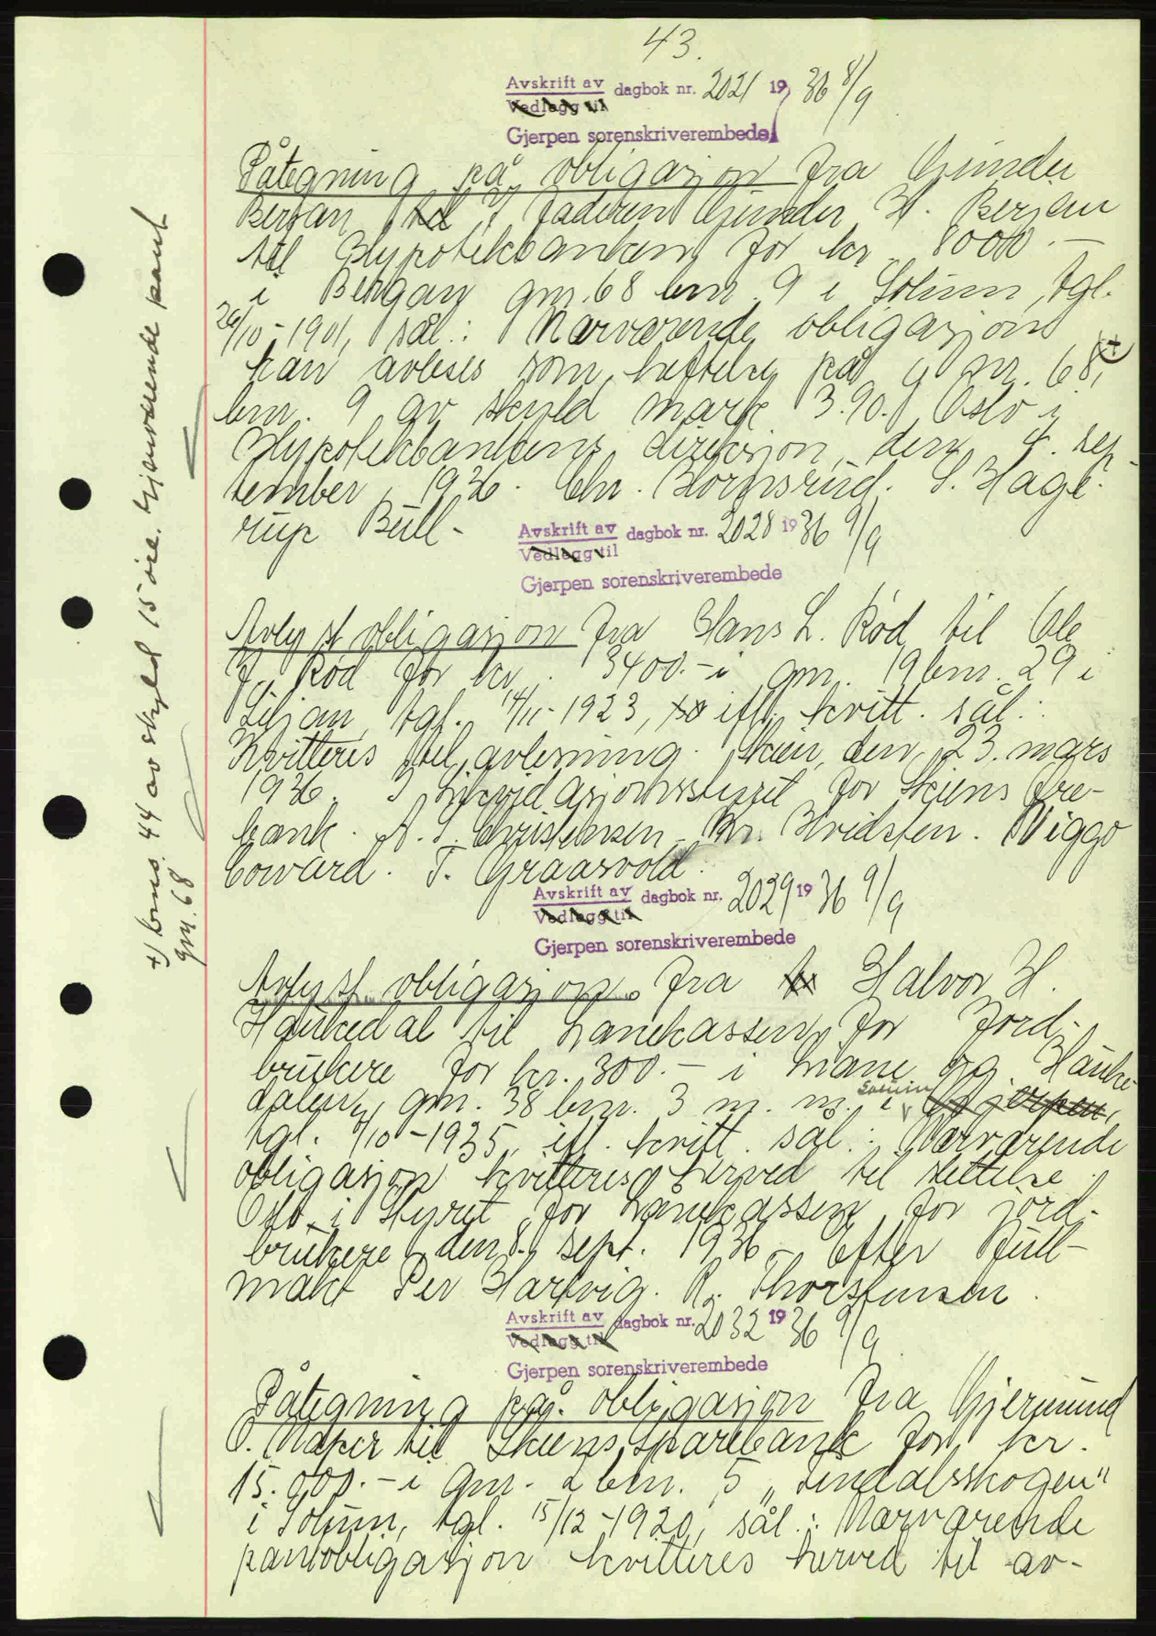 43.
Avskrift av dagbok nr. 2021 1936 8/9
Vedlegg til
Gjerpen sorenskriverembede
Påtegning på obligasjon fra Gunder
Berjan faderen Gunder H. Berjan
til Hypotekbanken for kr. 8000.-
i Bergan gnr. 68 bnr. 9 i Solum, tgl.
26/10-1901, sål.: Nærværende obligasjon
kan avleses som heftelse på g.nr. 68, +)
bnr. 9 av skyld mark 3.90. Oslo i
Hypotekbankens direksjon, den 4. sep-
tember 1936. Chr. Hornsrud. S. Hage-
rup Bull-
Avskrift av dagbok nr. 2028 1936 9/9
Vedlegg til
Gjerpen sorenskriverembede
Avlyst obligasjon fra Hans L. Rød til Ole
J. Rød for kr. 3400.- i gnr. 19 bnr. 29 i
Siljan, tgl. 14/11-1923, ifl. kvitt. sål.:
Kvitteres til avlesning. Skien, den 23. mars
1936. I Likvidasjonsstyret for Skiens Cre-
bank. A. S. Christensen. Kr. Hvidsten. Viggo
Coward. T. Graasvold.
Avskrift av dagbok nr. 2029 1936 9/9
Vedlegg til
Gjerpen sorenskriverembede
Avlyst obligasjon fra Halvor H.
Haukedal til Lånekassen for Jord-
brukere for kr. 300.- i Liane og Hauke-
dalen, gnr. 38 bnr. 3 m. m. i Solum Gjerpen,
tgl. /10-1935, ifl. kvitt. sål.: Nærværende
obligasjon kvitteres herved til slettelse.
Oslo i Styret for Lånekassen for jord-
brukere den 8. sept. 1936. Efter Full-
makt Per Hartvig. R. Thorstensen.
Avskrift av dagbok nr. 2032 1936 9/9
Vedlegg til
Gjerpen sorenskriverembede
Påtegning på obligasjon fra Gjermund
O. Næper til Skiens Sparebank for kr.
15.000.- i gnr. 2 bnr. 5 „Lindalsskogen"
i Solum, tgl. 15/12-1920, sål.: Nærværende
pantobligasjon kvitteres herved til av-
+) bnr. 44 av skyld 15 øre. Gjenværende pant
gnr. 68